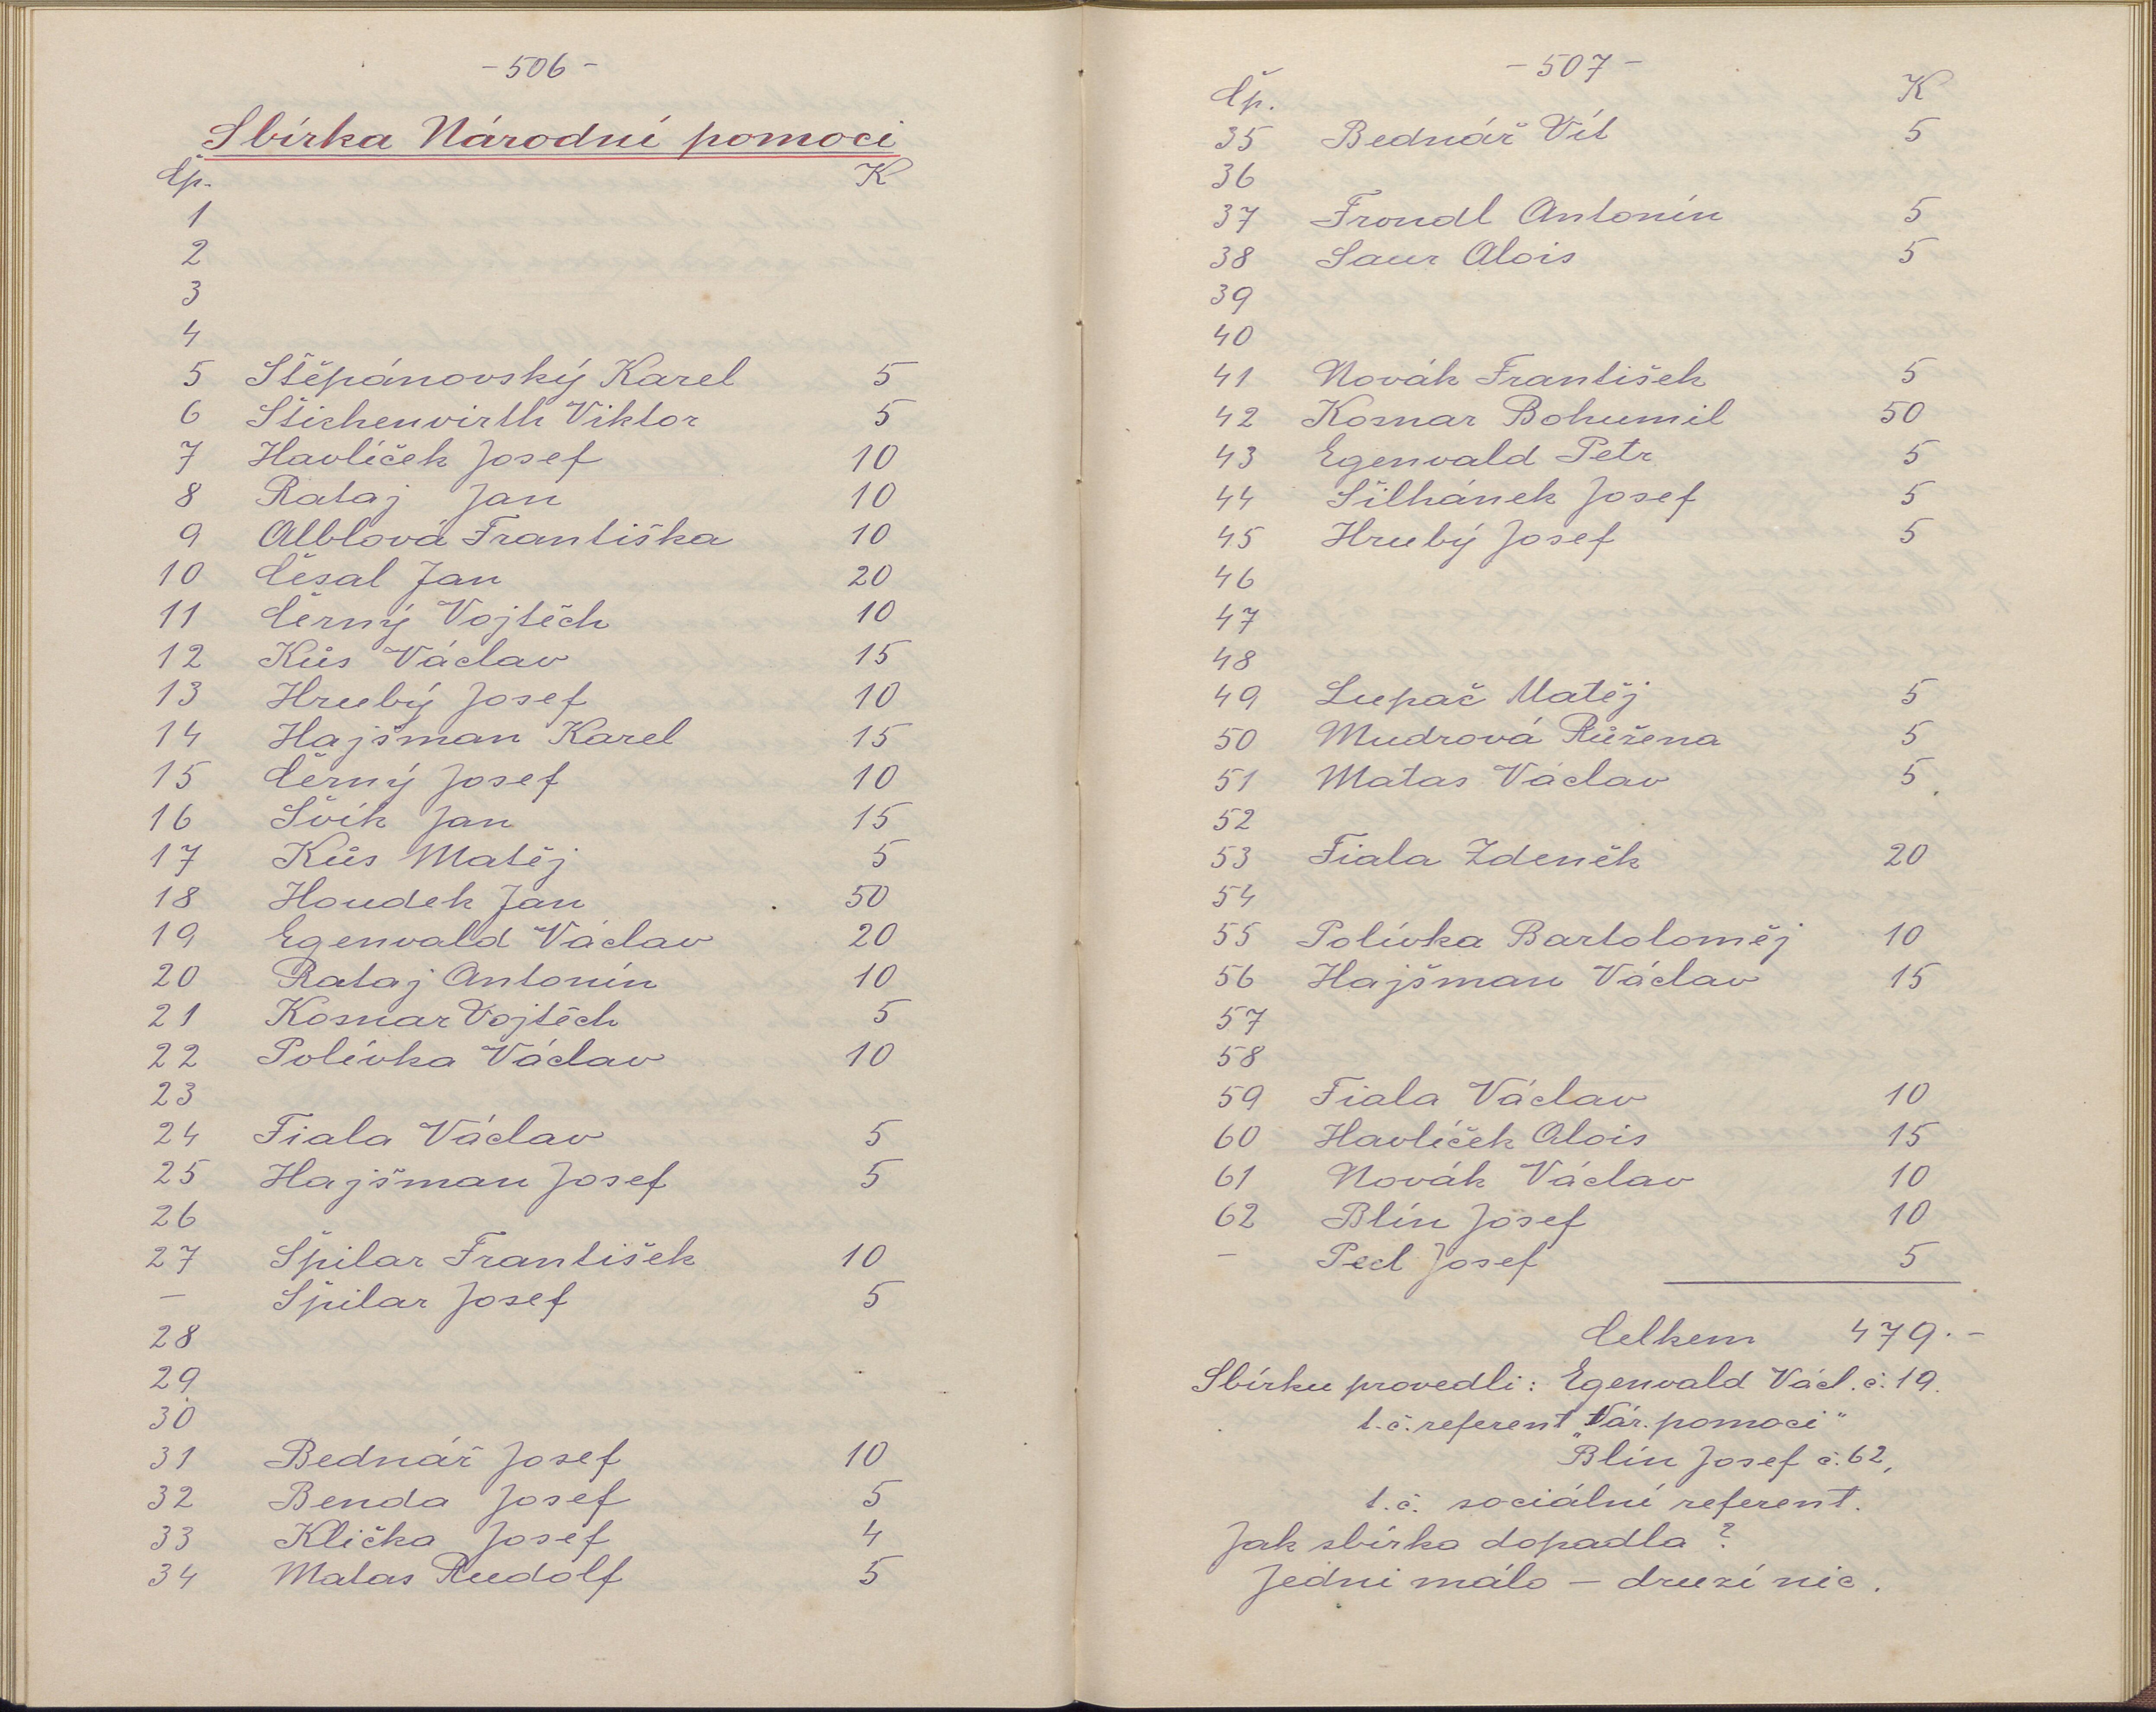 - 506 -
Sbírka Národní pomoci
Čp. K
1
2
3
4
5 Štěpánovský Karel 5
6 Štichenwirth Viktor 5
7 Havlíček Josef 10
8 Rataj Jan 10
9 Alblová Františka 10
10 Česal Jan 20
11 Černý Vojtěch 10
12 Kůs Václav 15
13 Hrubý Josef 10
14 Hajšman Karel 15
15 Černý Josef 10
16 Švík Jan 15
17 Kůs Matěj 5
18 Houdek Jan 50
19 Egenwald Václav 20
20 Rataj Antonín 10
21 Kosnar Vojtěch 5
22 Polívka Václav 10
23
24 Fiala Václav 5
25 Hajšman Josef 5
26
27 Špilar František 10
- Špilar Josef 5
28
29
30
31 Bednář Josef 10
32 Benda Josef 5
33 Klička Josef 4
34 Matas Rudolf 5
- 507 -
Čp. K
35 Bednář Vít 5
36
37 Frondl Antonín 5
38 Saur Alois 5
39
40
41 Novák František 5
42 Kosnar Bohumil 50
43 Egenwald Petr 5
44 Šilhánek Josef 5
45 Hrubý Josef 5
46
47
48
49 Lupač Matěj 5
50 Mudrová Růžena 5
51 Matas Václav 5
52
53 Fiala Zdeněk 20
54
55 Polívka Bartoloměj 10
56 Hajšman Václav 15
57
58
59 Fiala Václav 10
60 Havlíček Alois 15
61 Novák Václav 10
62 Blín Josef 10
- Pecl Josef 5
Celkem 479.-
Sbírku provedli: Egenwald Václ. č. 19.
t. č. referent „Nár. pomoci"
Blín Josef č. 62,
t. č. sociální referent.
Jak sbírka dopadla?
Jedni málo - druzí nic.